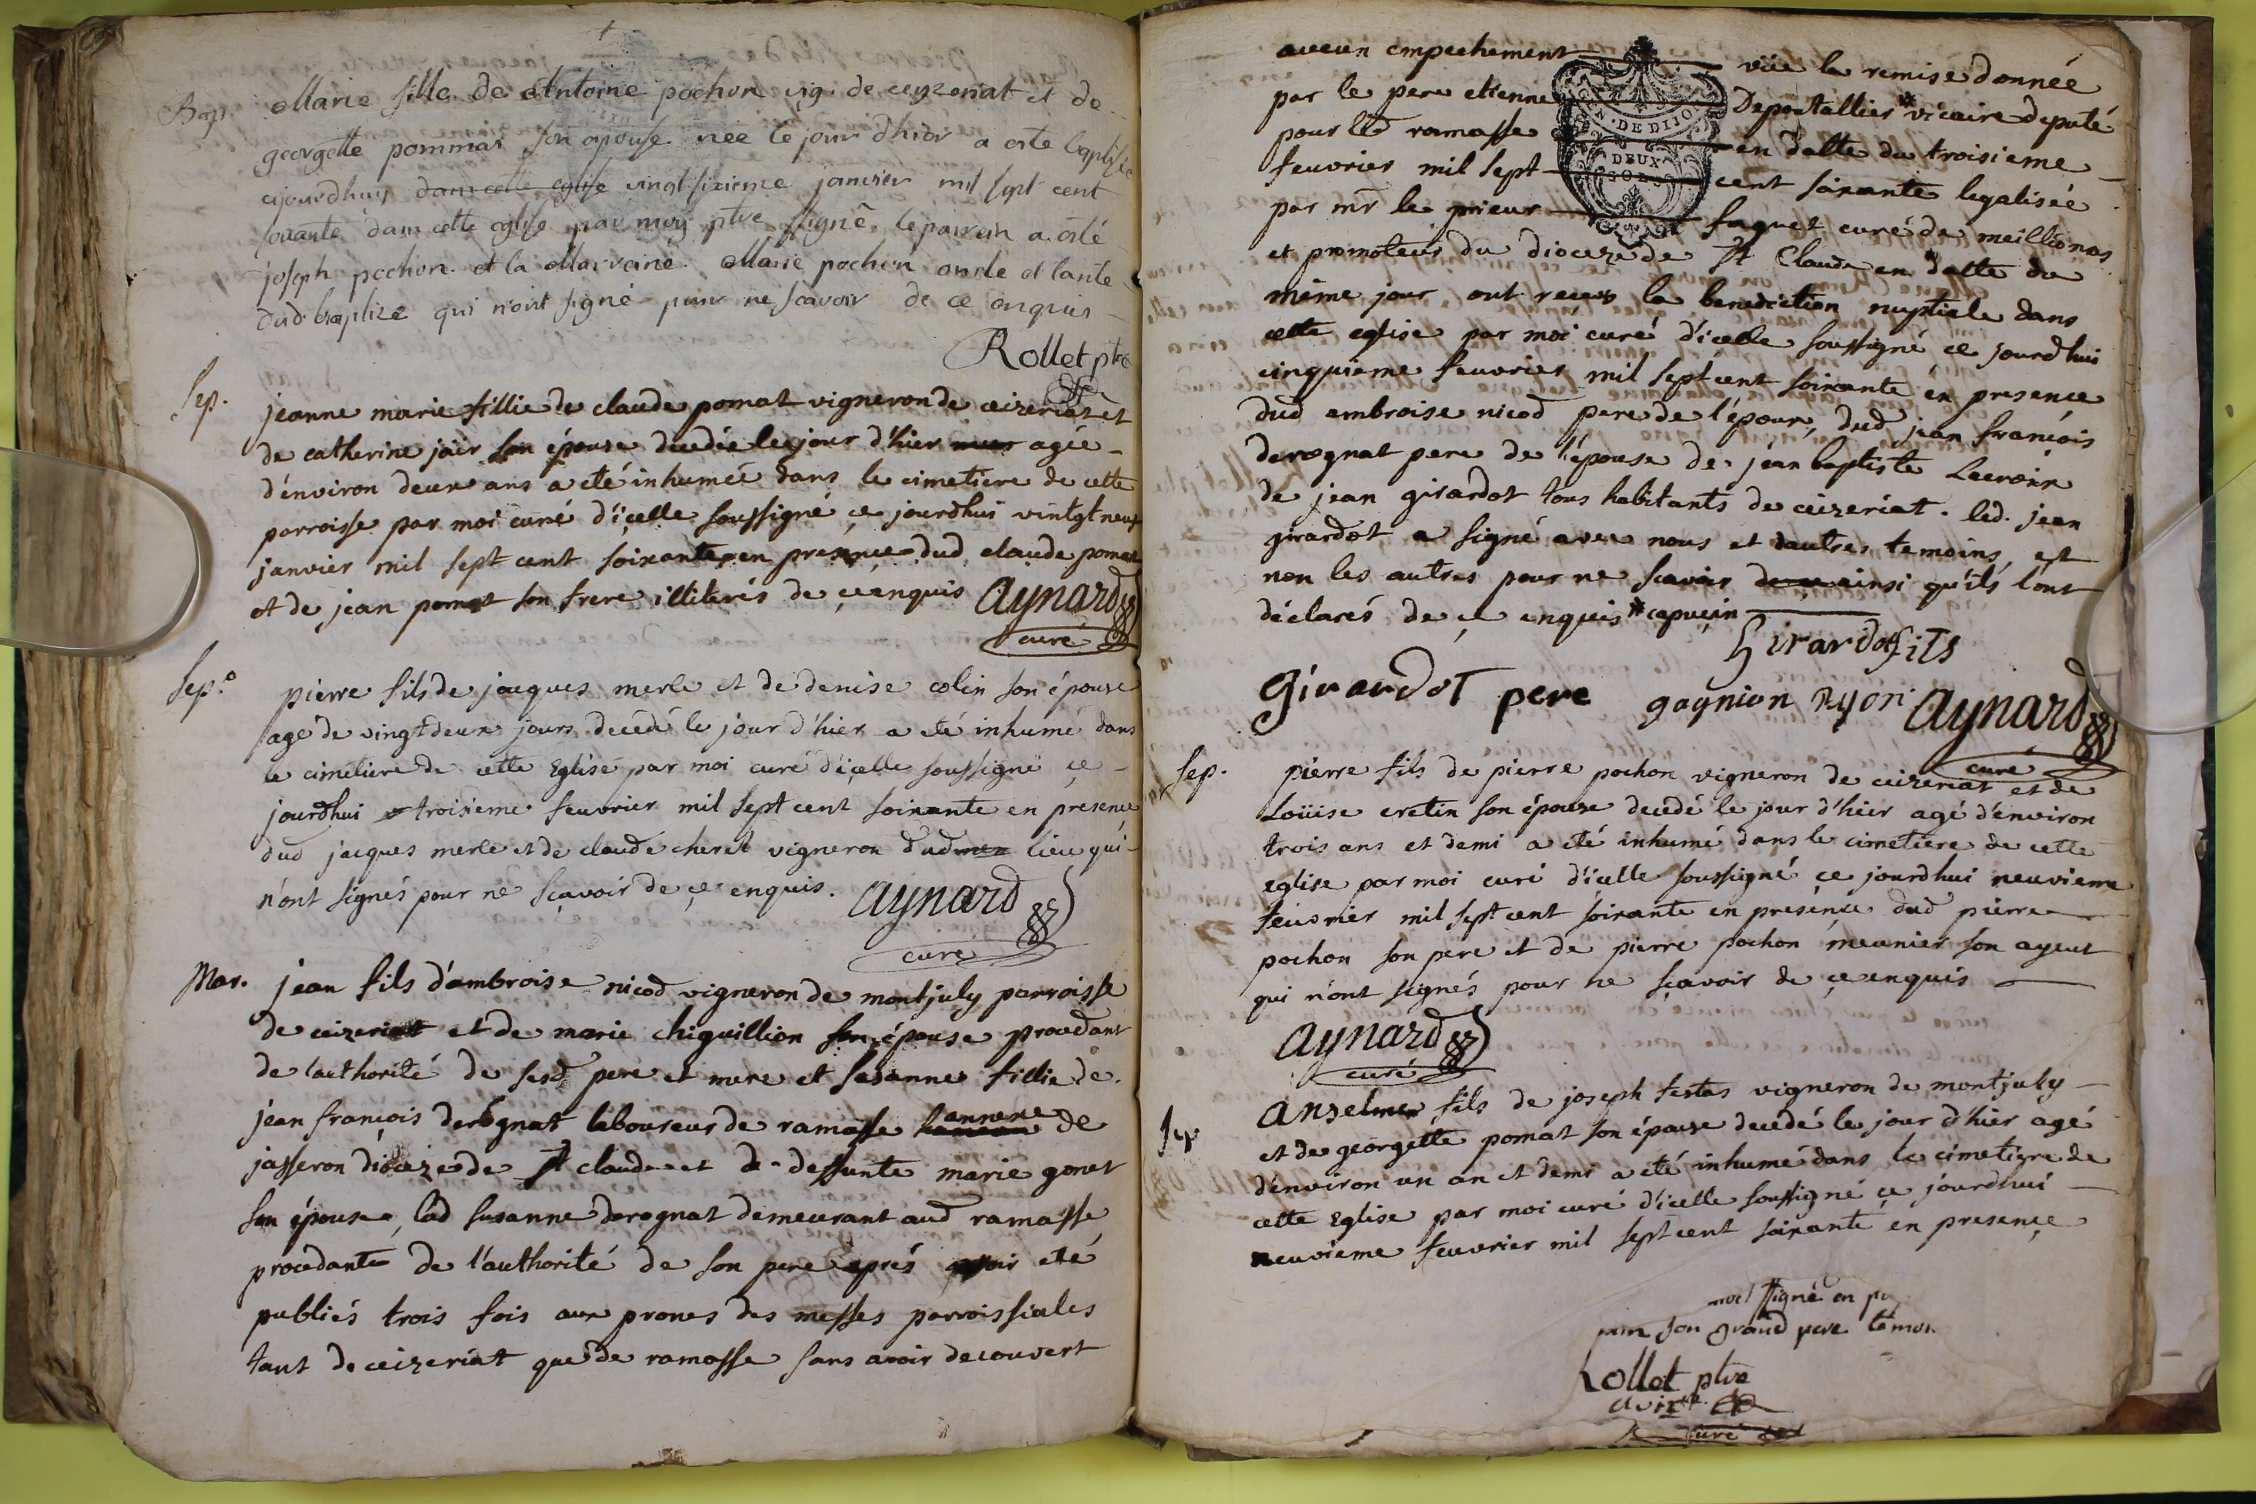 Bap. Marie fille de Antoine pochon vig. de ceyzeriat et de
georgette pommat son epouse née le jour d'hier a este baptisée
cejourdhuy dans cette eglise vingt sixieme janvier mil sept cent
soixante dans cette eglise par moy ptre signé, le parrain a esté
joseph pochon et la Marraine Marie pochon oncle et tante
dud. baptizé qui n'ont signé pour ne scavoir de ce enquis
Rollet ptre
Sep. jeanne marie fillie de claude pomat vigneron de ceizeriat et
de catherine jair son épouse decedée le jour d'hier agée
d'environ deux ans a eté inhumée dans le cimetiere de cette
parroisse par moi curé d'icelle soussigné ce jourdhui vintgt neuf
janvier mil sept cent soixante, en presence dud. claude pomat
et de jean pomat son frere illiterés de ce enquis Aynard
curé
Sep.e pierre fils de jacques merle et de denise colin son épouse
agé de vingt deux jours decedé le jour d'hier a eté inhumé dans
le cimetiere de cette Eglise par moi curé d'icelle soussigné ce
jourdhui troisieme feuvrier mil sept cent soixante en presence
dud jacques merle et de claude cheret vigneron dud lieu qui
n'ont signés pour ne sçavoir de ce enquis. Aynard
curé
Mar. jean fils d'ambroise nicod vigneron de montjuly parroisse
de ceizeriat et de marie chiquillion son épouse procedant
de l'authorité de sesd pere et mere et susanne fillie de
jean françois derognat laboureur de ramasse annexe de
jasseron dioceze de St claude et de deffunte marie gonet
son épouse, lad susanne derognat demeurant aud ramasse
procedante de l'authorité de son pere aprés avoir eté
publiés trois fois aux prones des messes parroissiales
tant de ceizeriat que de ramasse sans avoir decouvert
aucun empechement vüe la remise donnée
par le pere etienne Deportallier * vicaire deputé
pour led ramasse en datte du troisieme
feuvrier mil sept cent soixante legalisée
par mr le prieur faguet curé de meillonas
et promoteur du dioceze de St Claude en datte du
même jour ont reçus la benediction nuptiale dans
cette eglise par moi curé d'icelle soussigné ce jourdhui
cinquieme feuvrier mil sept cent soixante en presence
dud ambroise nicod pere de l'époux, dud jean françois
derognat pere de l'épouse de jéan baptiste Lacroix
de jean girardot tous habitants de ceizeriat. led. jean
girardot a signé avec nous et dautres temoins, et
non les autres pour ne sçavoir ainsi qu'ils l'ont
déclarés de ce enquis * capucin
DE DIJO
DEUX
SOLS
Girardot fils
Girardot pere gagnion Ryon Aynard
curé
Sep. pierre fils de pierre pochon vigneron de ceizeriat et de
Loüise cretin son épouse decedé le jour d'hier agé d'environ
trois ans et demi a eté inhumé dans le cimetiere de cette
eglise par moi curé d'icelle soussigné ce jourdhui neuvieme
feuvrier mil sept cent soixante en presence dud pierre
pochon son pere et de pierre pochon meunier son ayeul
qui n'ont signés pour ne sçavoir de ce enquis
Aynard
curé
Sep Anselme fils de joseph testas vigneron de montjuly
et de georgette pomat son épouse decedé le jour d'hier agé
d'environ un an et demi a eté inhumé dans le cimetiere de
cette Eglise par moi curé d'icelle soussigné ce jourdhui
neuvieme feuvrier mil sept cent soixante en presence
signé en
son grand pere temoi
Rollet ptre
curé